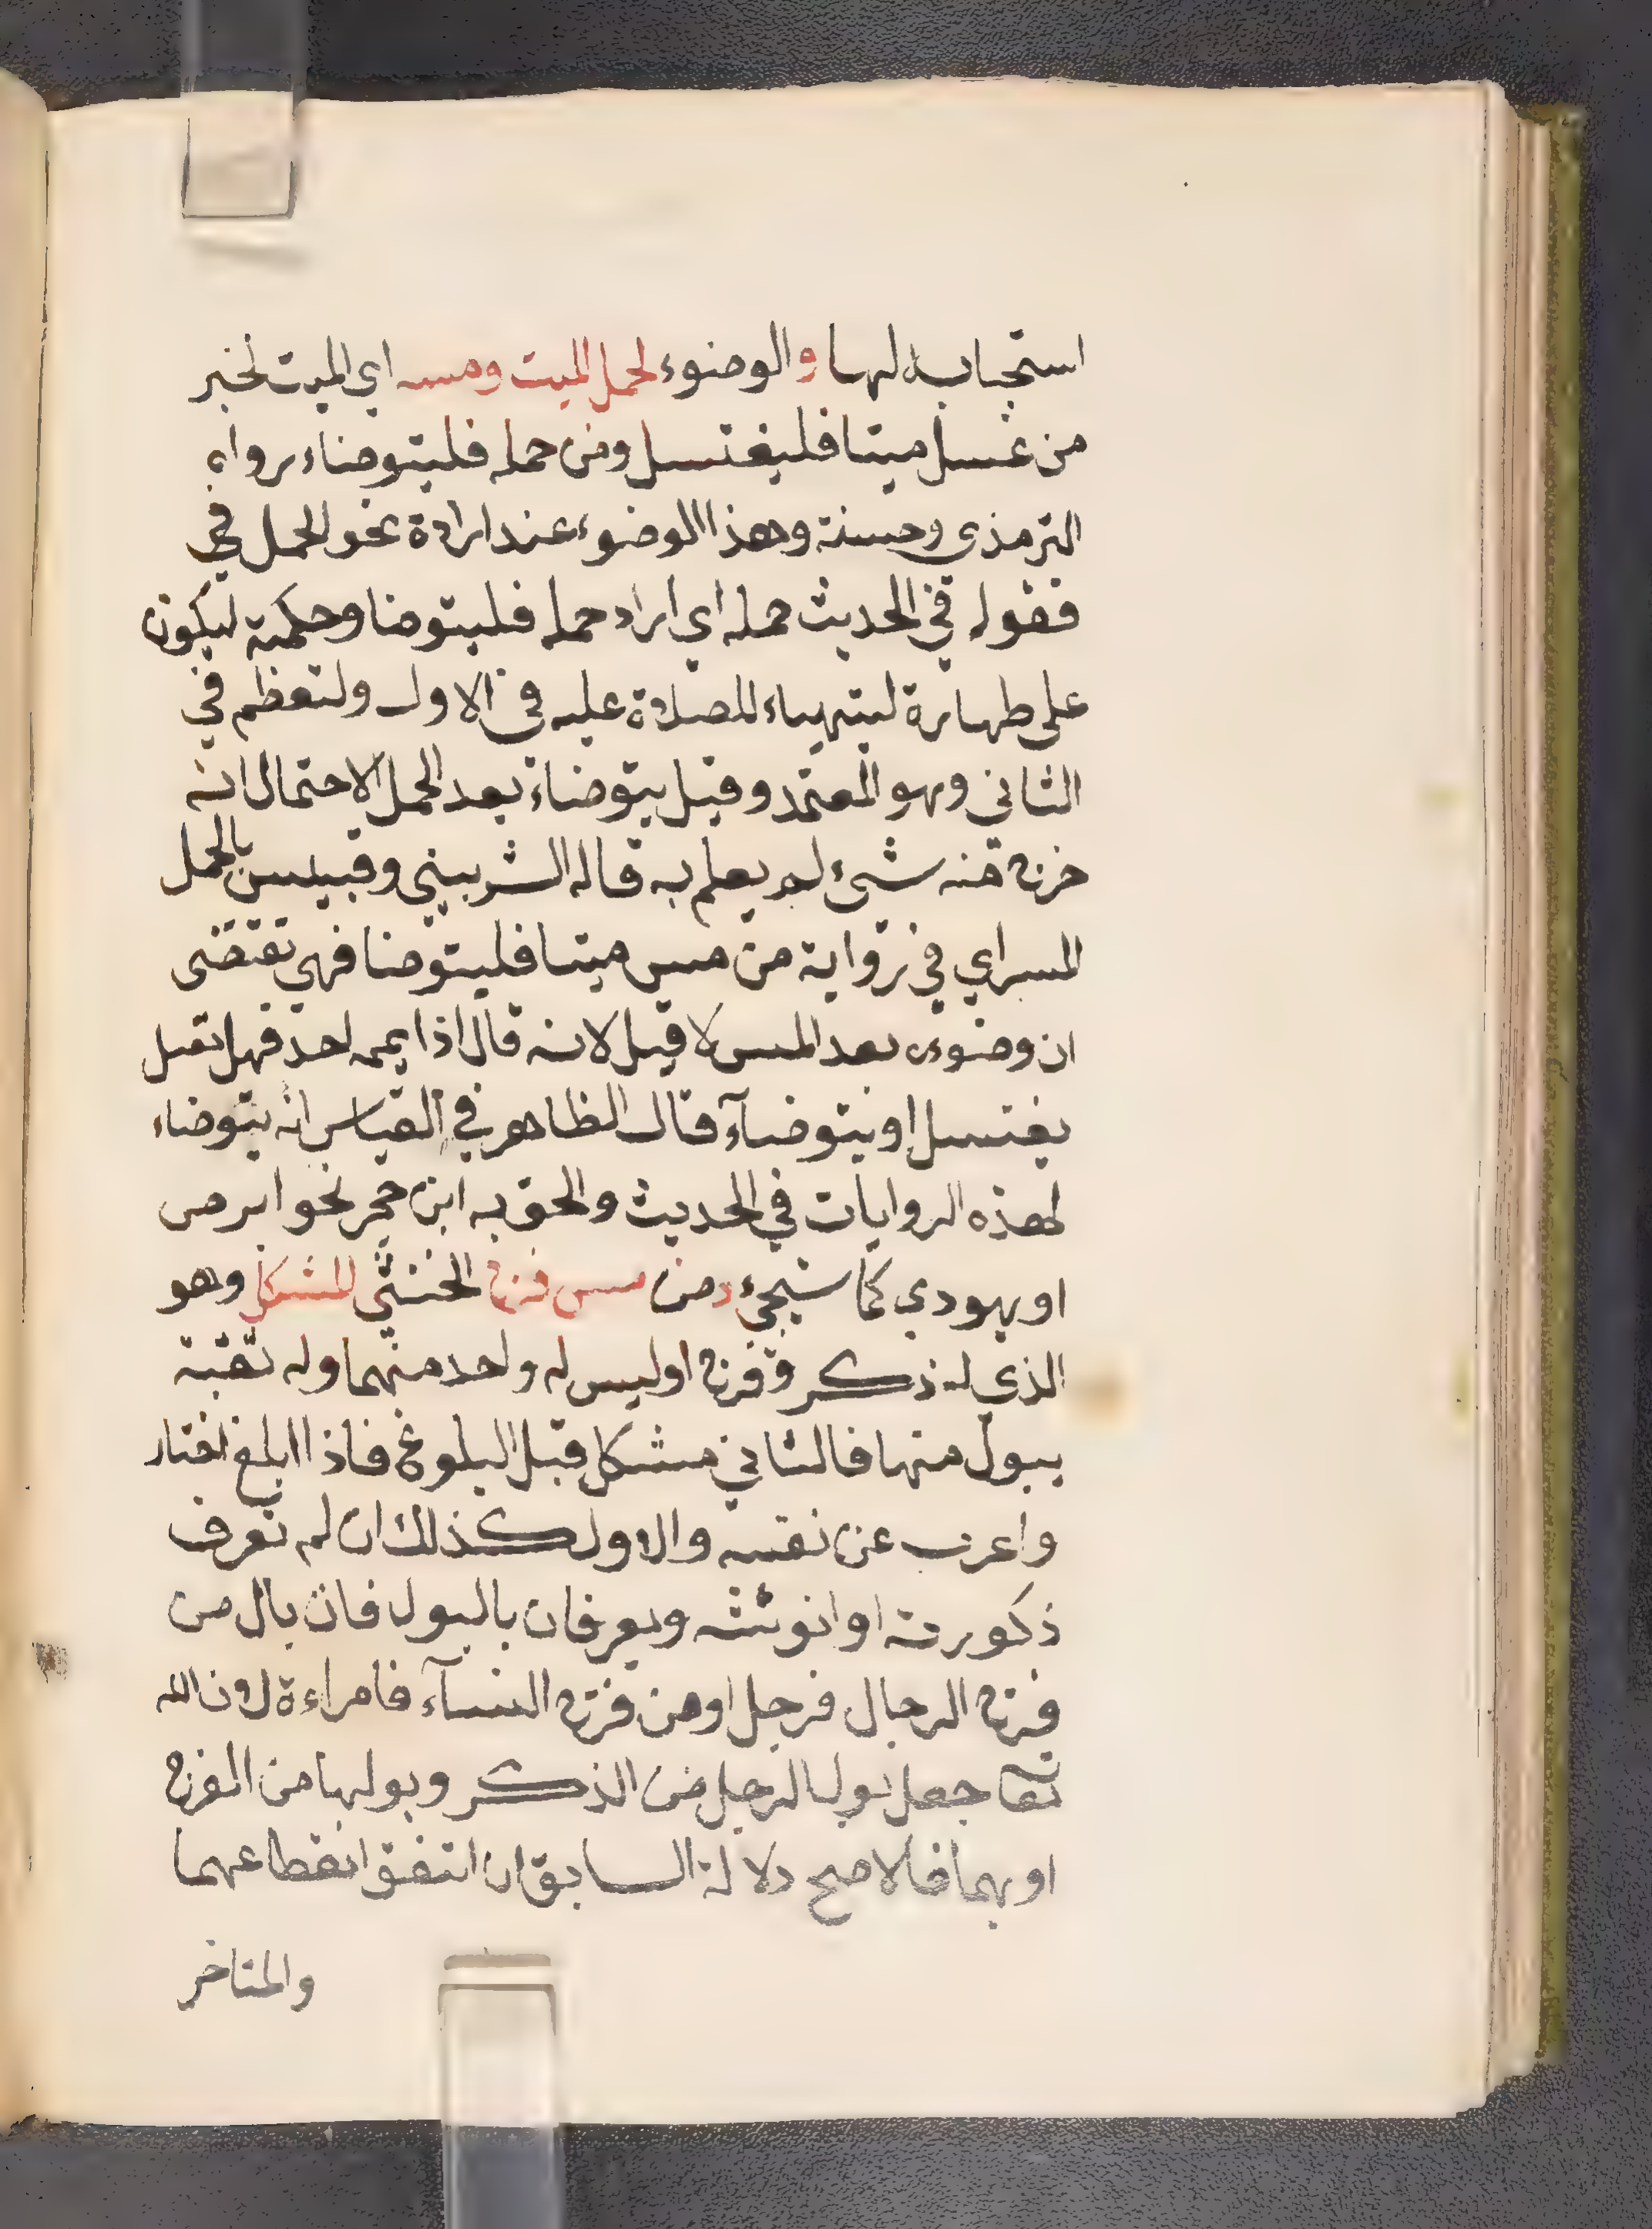 استحبابه لها والوضوء لحمل الميت ومسه اي الميت لخبر
من غسل ميتا فليغتسل ومن حمله فليتوضاء رواه
الترمذي وحسنه وهذا الوضوء عند ارادة نحو الحمل في
فقوله في الحديث حمله اي اراد حمله فليتوضا وحكمته ليكون
على طهارة ليتهياء للصلاة عليه في الاول ولتعظم في
الثاني وهو المعتمد وقيل يتوضاء بعد الحمل لاحتمال انه
خرج منه شيء لم يعلم به قاله الشربيني وقييس بالحمل
المس اي في رواية من مس ميتا فليتوضا فهي تقتضى
ان وضوءه بعد المس لا قبل لانه قال اذا يممه احد فهل تقبل
يغتسل او يتوضآء قال الظاهر في القياس انه يتوضاء
لهذه الروايات في الحديث والحق به ابن حجر نحو ابرص
او يهودي كما سيجيء ومن مس فرج الخنثى المشكل وهو
الذي له ذكر وفرج او ليس له واحد منهما وله ثقبة
يبول منها فالثاني مشكل قبل البلوغ فاذا ابلغ اختار
واعرب عن نفسه والاول كذلك ان لم تعرف
ذكورته او انوثته ويعرفان بالبول فان بال من
فرج الرجال فرجل او من فرج النسآء فامراءة لان الله
تعا جعل بول الرجل من الذكر وبولها من الفرج
او بهما فالاصح دلالة السابق ان اتفق انقطاعهما
والمتاخر